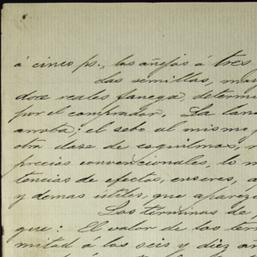 á cinco ps., los añejos á tres
das semillas, ma
dos reales fanega, determi
por el comprador. La lana
arroba; el sebo al mismo p
otra clase de esquilmos,
precios convencionales, lo m
tencias de efectos, enseres, a
y demas útiles, que aparez
Los términos de
que: El valor de las ter
mitad a los seis y diez añ